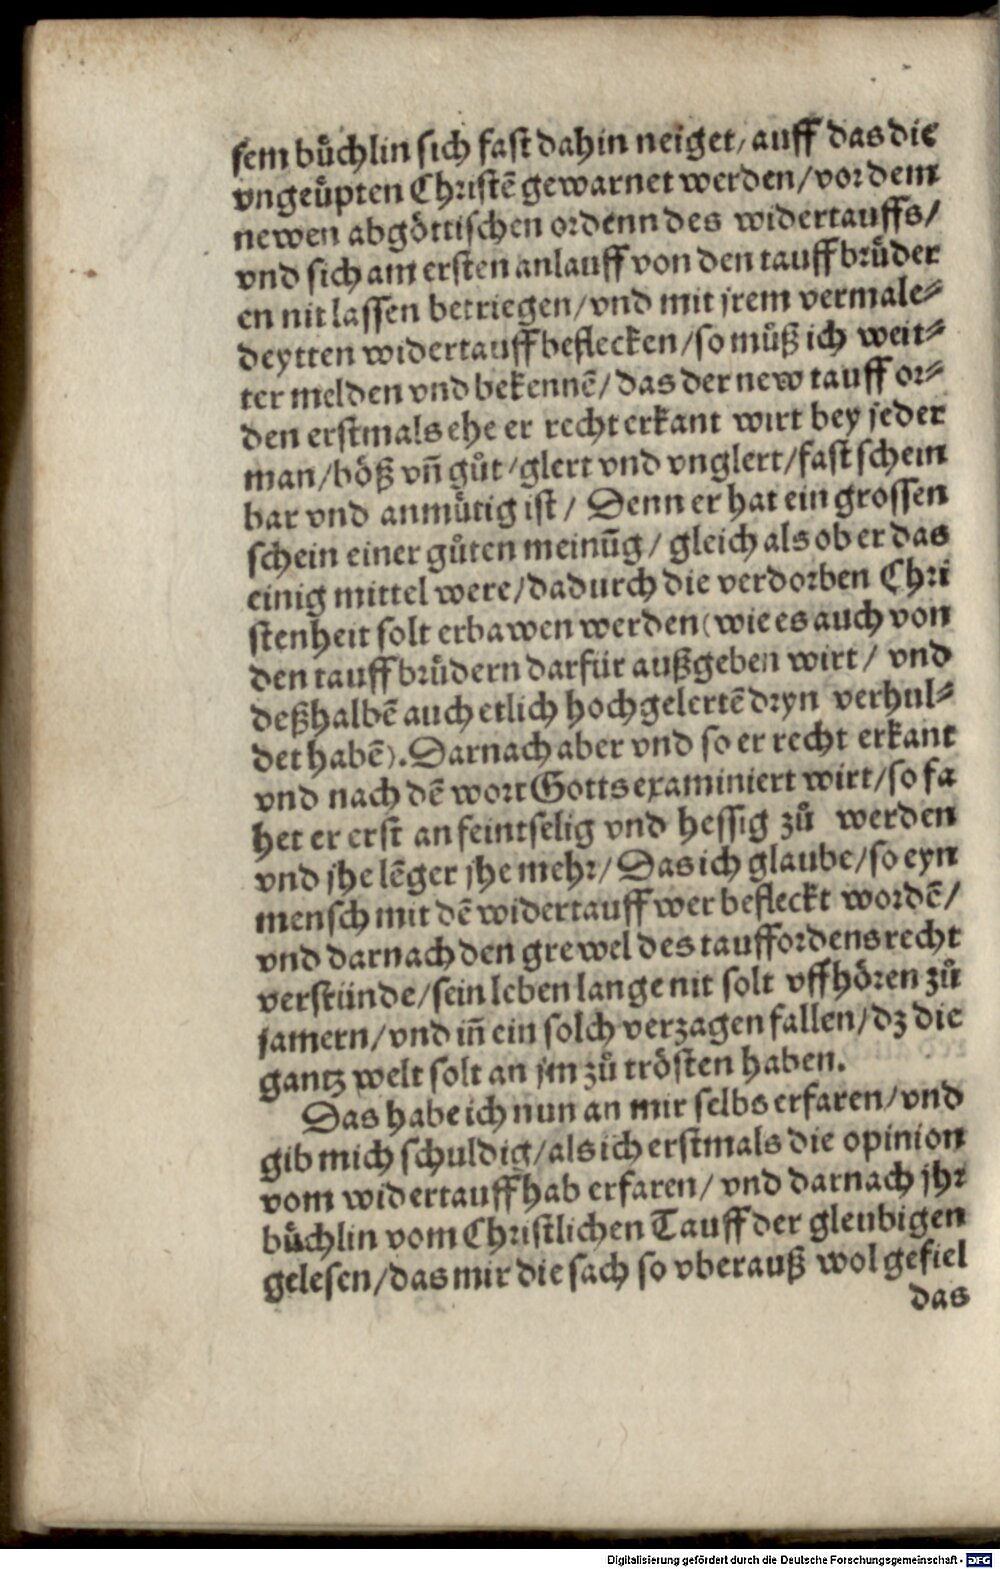 sem bůchlin sich fast dahin neiget/ auff das die
vngeüpten Christē gewarnet werden/vor dem
newen abgöttischen ordenn des widertauffs/
vnd sich am ersten anlauff von den tauff brůder
en nit lassen betriegen/vnd mit jrem vermale⸗
deytten widertauff beflecken/so můß ich weit⸗
ter melden vnd bekennē/das der new tauff or⸗
den erstmals ehe er recht erkant wirt bey jeder
man/böß vn̄ gůt/glert vnd vnglert/fast schein
bar vnd anmůtig ist/ Denn er hat ein grossen
schein einer gůten meinūg/ gleich als ob er das
einig mittel were/dadurch die verdorben Chri
stenheit solt erbawen werden(wie es auch von
den tauff brůdern darfür außgeben wirt/ vnd
deßhalbē auch etlich hochgelertē dryn verhul⸗
det habē). Darnach aber vnd so er recht erkant
vnd nach dē wort Gotts examiniert wirt/so fa
het er erst an feintselig vnd hessig zů werden
vnd jhe lēger jhe mehr/ Das ich glaube/so eyn
mensch mit dē widertauff wer befleckt wordē/
vnd darnach den grewel des tauffordens recht
verstünde/sein leben lange nit solt vffhören zů
jamern/vnd in̄ ein solch verzagen fallen/dz die
gantz welt solt an jm zů trösten haben.
Das habe ich nun an mir selbs erfaren/vnd
gib mich schuldig/als ich erstmals die opinion
vom widertauff hab erfaren/ vnd darnach jhr
bůchlin vom Christlichen Tauff der gleubigen
gelesen/das mir die sach so vberauß wol gefiel
das
Digitalisierung gefördert durch die Deutsche Forschungsgemeinschaft - DFG